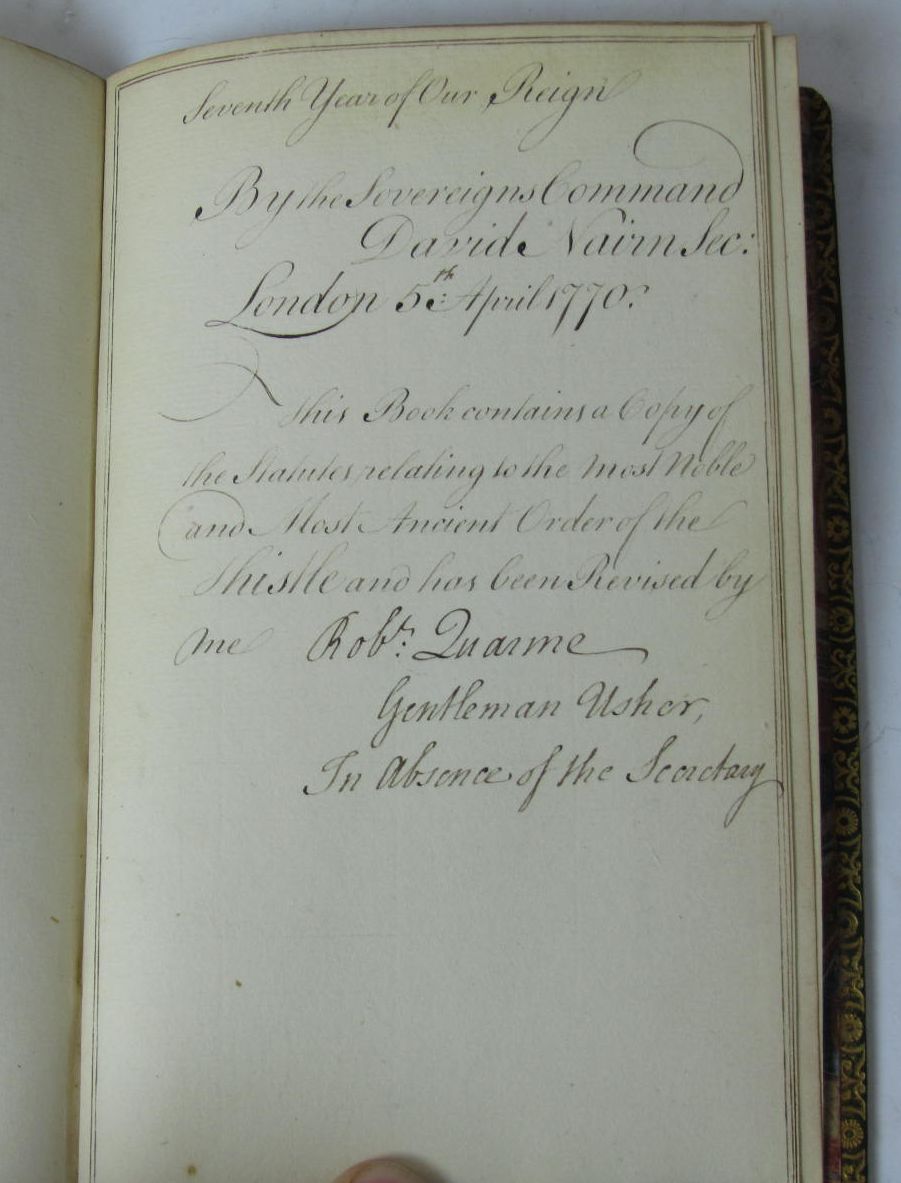 Seventh Year of Our Reign
By the Sovereigns Command
David Nairn Sec:
London 5th: April 1770.
This Book contains a Copy of
the Statutes relating to the most Noble
and Most Ancient Order of the
Thistle and has been Revised by
me Robt: Quarme
Gentleman Usher,
In Absence of the Secretary